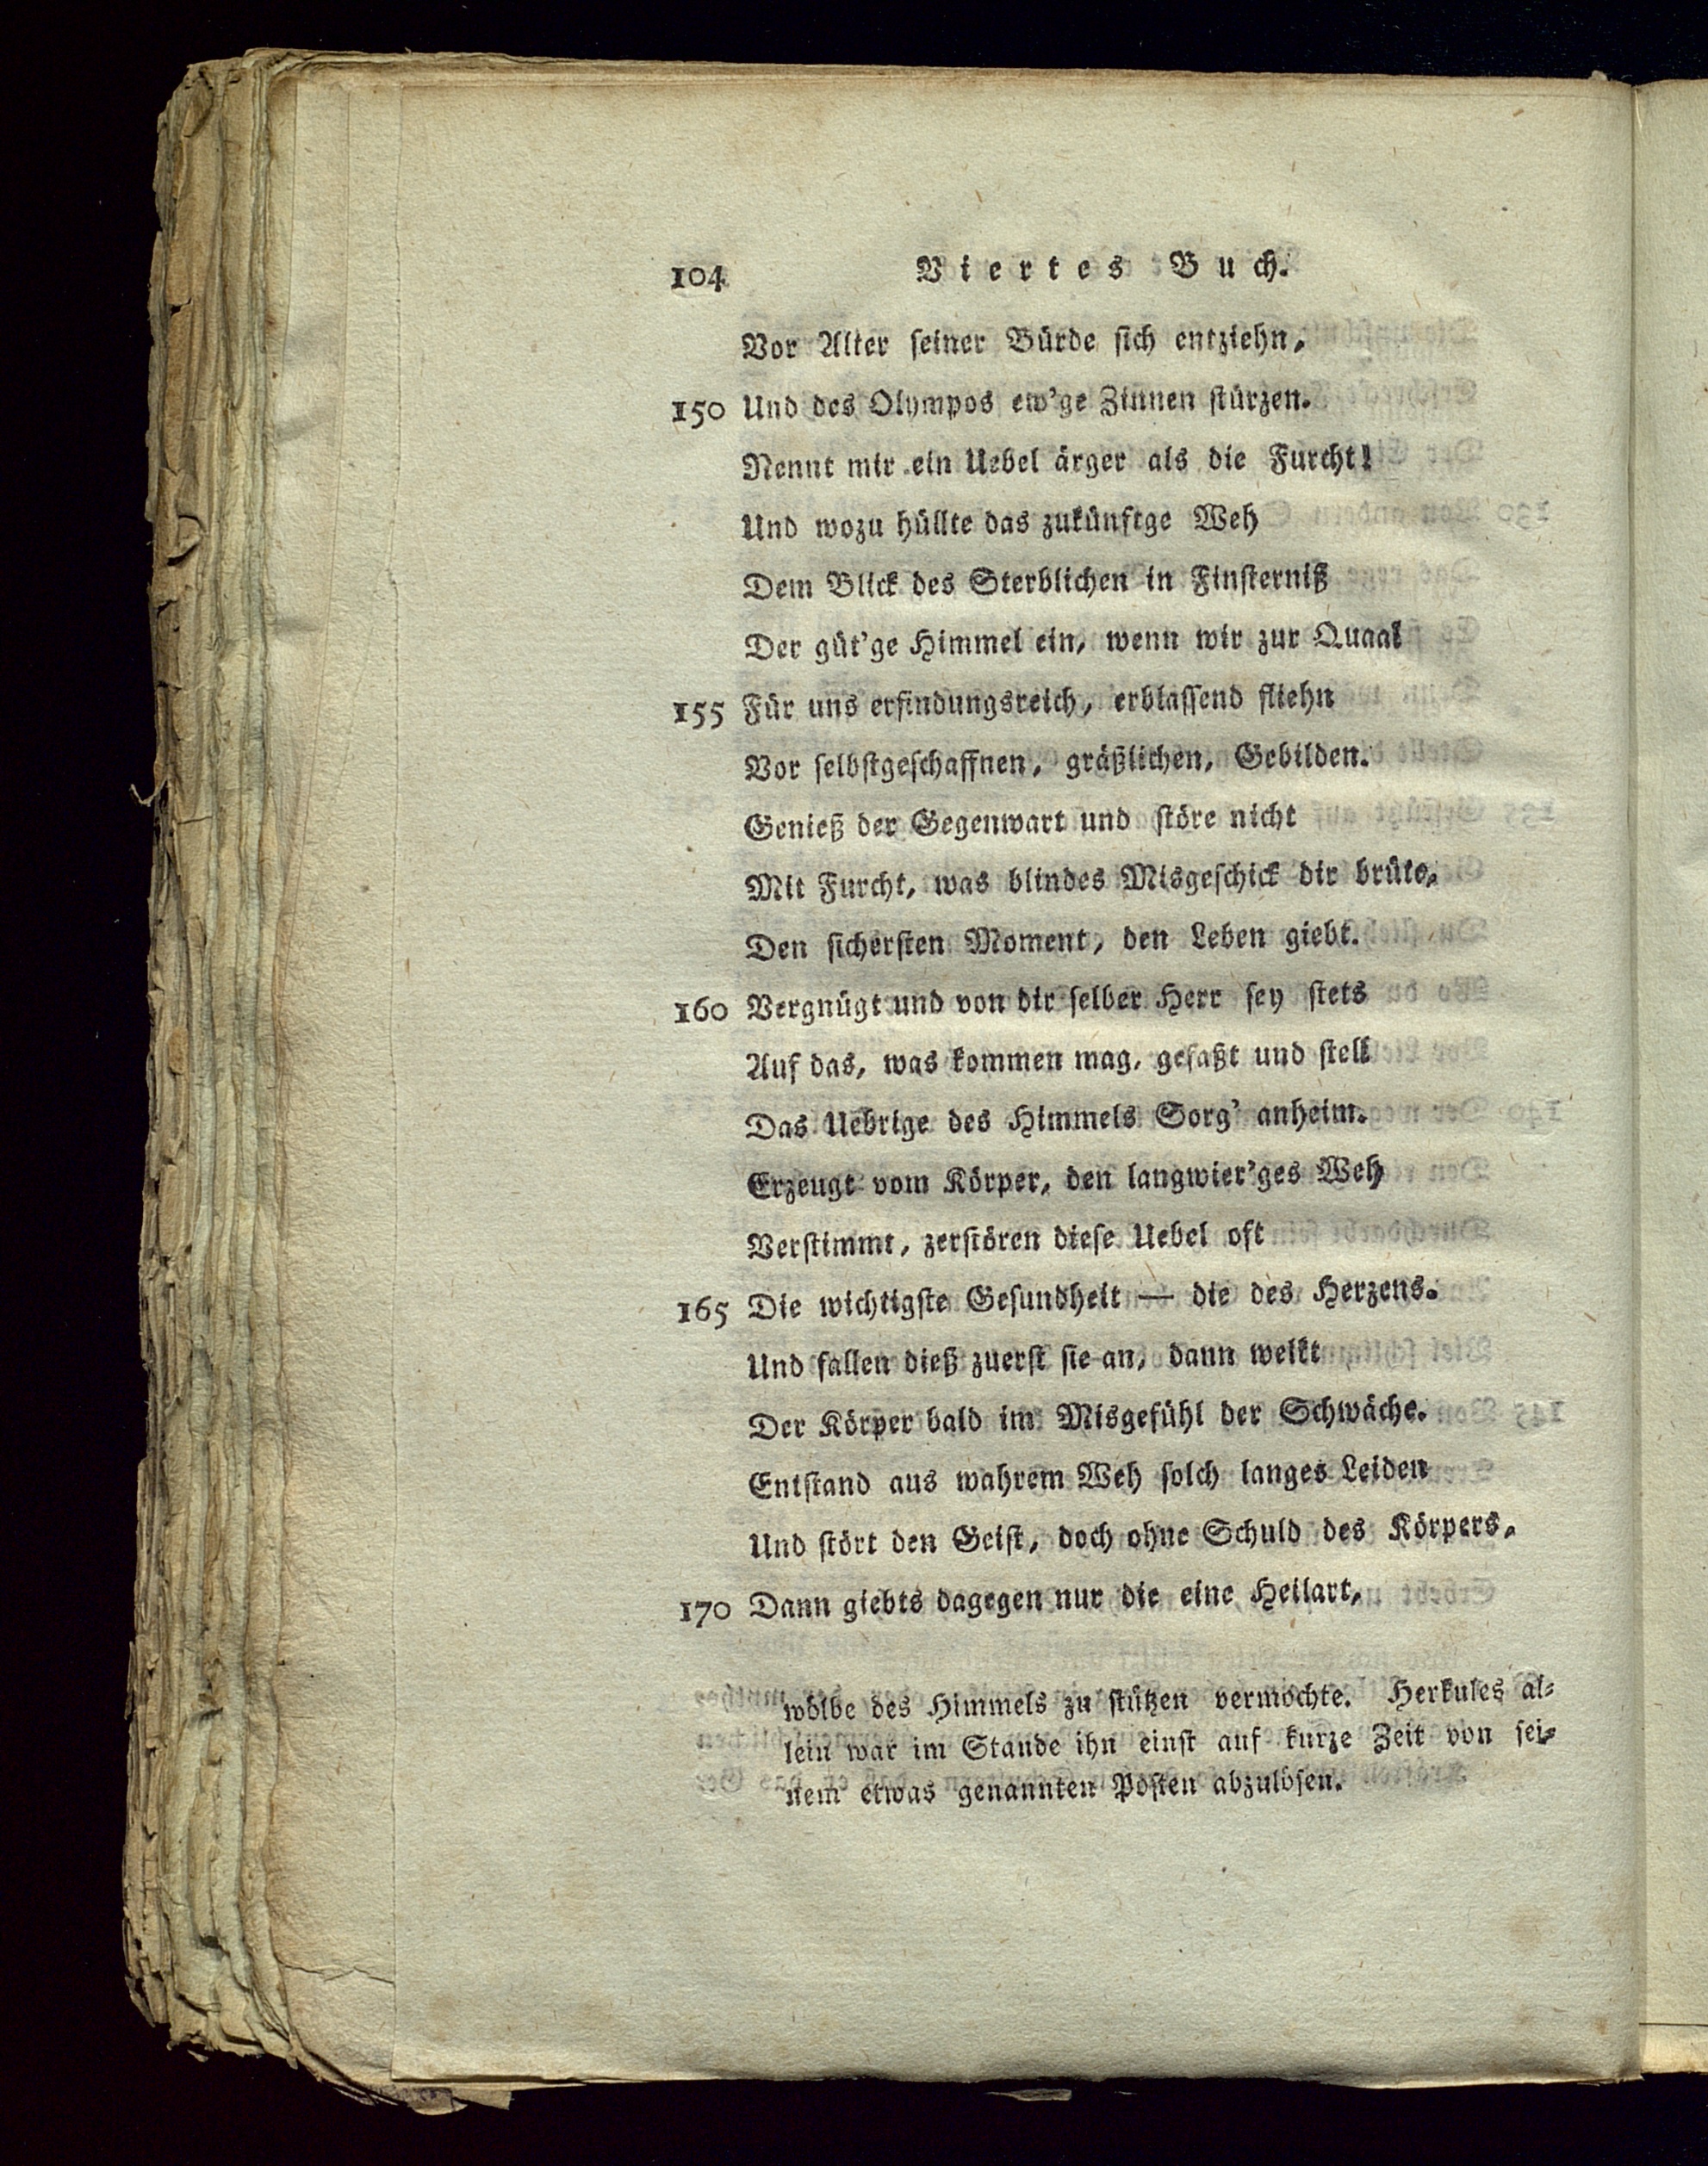 104 Viertes Buch.
Vor Alter ſeiner Bürde ſich entziehn,
150 Und des Olympos ew'ge Zinnen ſtürzen.
Nennt mir ein Uebel ärger als die Furcht!
Und wozu hüllte das zukünftge Weh
Dem Blick des Sterblichen in Finſterniß
Der güt'ge Himmel ein, wenn wir zur Quaal
155 Für uns erfindungsreich, erblaſſend fliehn
Vor ſelbſtgeſchaffnen, gräßlichen, Gebilden.
Genieß der Gegenwart und ſtöre nicht
Mit Furcht, was blindes Misgeſchick dir brüte,
Den ſicherſten Moment, den Leben giebt.
160 Vergnügt und von dir ſelber Herr ſey ſtets
Auf das, was kommen mag, gefaßt und ſtell
Das Uebrige des Himmels Sorg' anheim.
Erzeugt vom Körper, den langwier'ges Weh
Verſtimmt, zerſtören dieſe Uebel oft
165 Die wichtigſte Geſundheit — die des Herzens.
Und fallen dieß zuerſt ſie an, dann welkt
Der Körper bald im Misgefühl der Schwäche.
Entſtand aus wahrem Weh ſolch langes Leiden
Und ſtört den Geiſt, doch ohne Schuld des Körpers,
170 Dann giebts dagegen nur die eine Heilart,
wölbe des Himmels zu ſtützen vermochte. Herkules al-
lein war im Stande ihn einſt auf kurze Zeit von ſei-
nem etwas genannten Poſten abzulöſen.